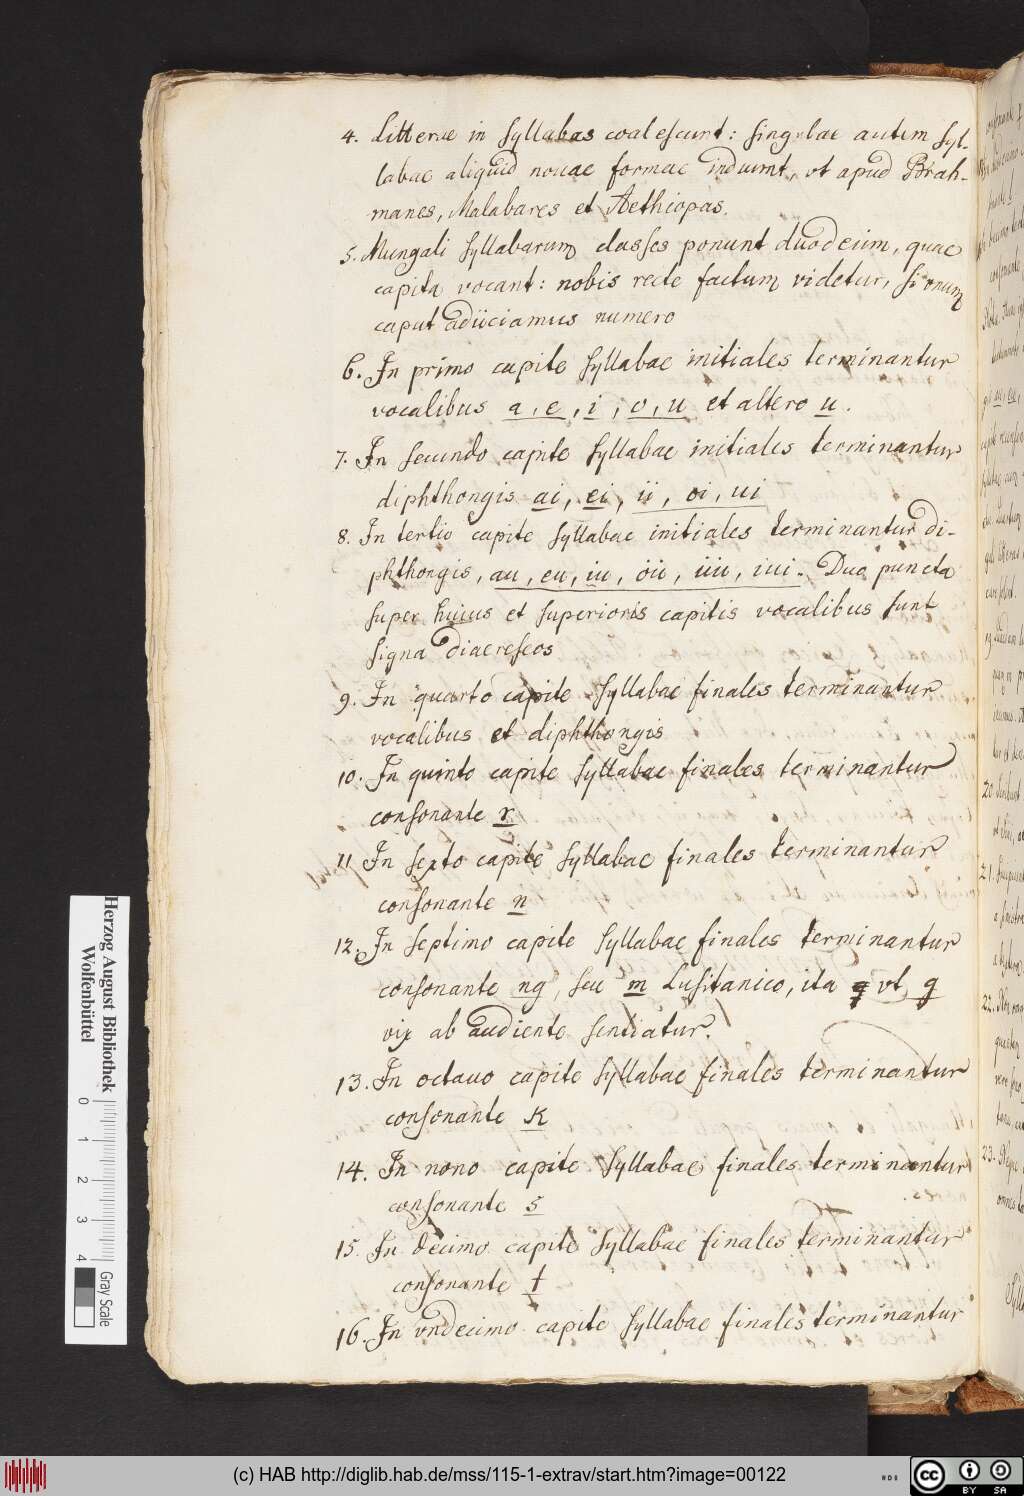 4. Litterae in syllabas coalescunt: singulae autem syl-
labae aliquid nouae formae induunt, vt apud Brah-
manes, Malabares et Aethiopas.
5. Mungali syllabarum classes ponunt duodecim, quae
capita vocant: nobis recte factum videtur, si vnum
caput adiiciamus numero
6. In primo capite syllabae initiales terminantur
vocalibus a, e, i, o, u et altero u.
7. In secundo capite syllabae initiales terminantur
diphthongis ai, ei, ii, oi, ui
8. In tertio capite syllabae initiales terminantur di-
phthongis, au, eu, iu, oü, üu, iui. Duo puncta
super huius et superioris capitis vocalibus sunt
signa diaereseos
9. In quarto capite syllabae finales terminantur
vocalibus et diphthongis
10. In quinto capite syllabae finales terminantur
consonante r
11 In sexto capite syllabae finales terminantur
consonante n
12. In septimo capite syllabae finales terminantur
consonante ng, seu m Lusitanico, ita vt g
vix ab audiente sentiatur.
13. In octauo capite syllabae finales terminantur
consonante k
14. In nono capite syllabae finales terminantur
consonante s
15. In decimo capite syllabae finales terminantur
consonante t
16. In vndecimo capite syllabae finales terminantur
20
21.
22.
23.
Herzog August Bibliothek
Wolfenbüttel
0 1 2 3 4
Gray Scale
(c) HAB http://diglib.hab.de/mss/115-1-extrav/start.htm?image=00122
cc BY SA